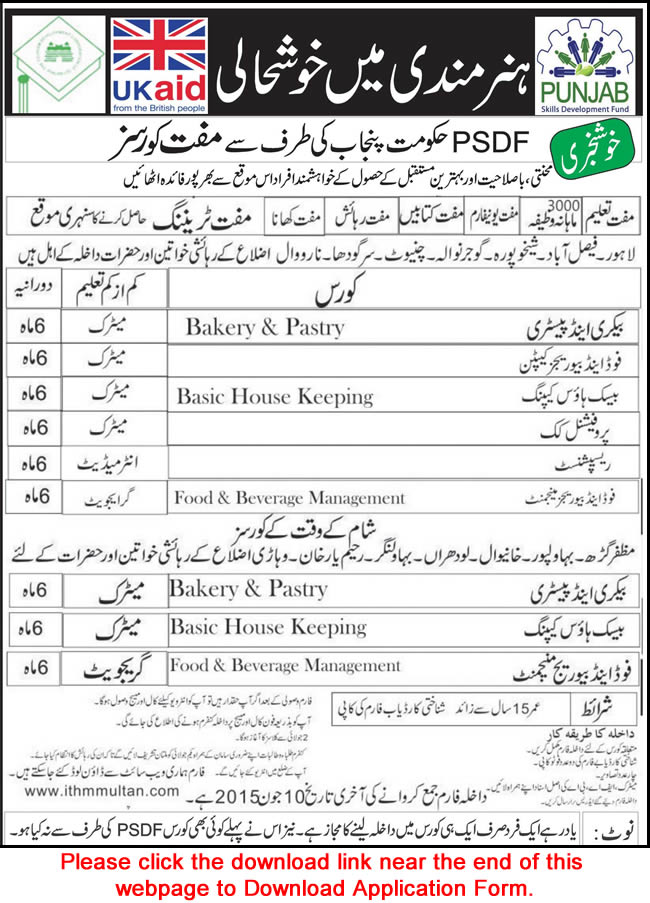 UKaid
from the British people
ہنر مندی میں خوشحالی
PUNJAB
Skills Development Fund
خوشخبری
PSDF حکومت پنجاب کی طرف سے مفت کورسز
محنتی، باصلاحیت اور بہترین مستقبل کے حصول کے خواہشمند افراد اس موقع سے بھر پور فائدہ اٹھائیں
مفت تعلیم 3000 ماہانہ وظیفہ مفت یونیفارم مفت کتابیں مفت رہائش مفت کھانا مفت ٹریننگ حاصل کرنے کا سنہری موقع
لاہور۔ فیصل آباد۔ شیخوپورہ۔ گوجرنوالہ۔ چنیوٹ۔ سرگودھا۔ نارووال اضلاع کے رہائشی خواتین اور حضرات داخلہ کے اہل ہیں
کورس کم از کم تعلیم دورانیہ
بیکری اینڈ پیسٹری Bakery & Pastry میٹرک 6ماہ
فوڈ اینڈ بیوریجز کیپٹن میٹرک 6ماہ
بیسک ہاؤس کیپنگ Basic House Keeping میٹرک 6ماہ
پروفیشنل کک میٹرک 6ماہ
ریسپشنسٹ انٹرمیڈیٹ 6ماہ
فوڈ اینڈ بیوریجز منیجمنٹ Food & Beverage Management گرایجویٹ 6ماہ
شام کے وقت کے کورسز
مظفر گڑھ۔ بہاولپور۔ خانیوال۔ لودھراں۔ بہاولنگر۔ رحیم یار خان۔ وہاڑی اضلاع کے رہائشی خواتین اور حضرات کے لئے
بیکری اینڈ پیسٹری Bakery & Pastry میٹرک 6ماہ
بیسک ہاؤس کیپنگ Basic House Keeping میٹرک 6ماہ
فوڈ اینڈ بیوریج منیجمنٹ Food & Beverage Management گریجویٹ 6ماہ
شرائط عمر 15 سال سے زائد شناختی کارڈ یا ب فارم کی کاپی
داخلہ کا طریقہ کار
متعلقہ کورس کے لئے داخلہ فارم مکمل کریں۔
شناختی کارڈ یا ب فارم کی دو عدد فوٹو کاپی۔
چار عدد تصاویر۔
فارم وصولی کے بعد اگر آپ حقدار ہیں تو آپ کو انٹرویو کیلئے کال اور میسج وصول ہوگا۔
آپ کو بذریعہ فون کال اور میسج پر داخلہ کنفرم ہونے کی اطلاع کی جائے گی۔
2 جولائی سے کلاسز کا آغاز ہوگا۔
فارم ہماری ویب سائٹ سے ڈاؤن لوڈ کئے جاسکتے ہیں۔
www.ithmmultan.com
داخلہ فارم جمع کروانے کی آخری تاریخ 10 جون 2015 ہے۔
نوٹ: یاد رہے ایک فرد صرف ایک ہی کورس میں داخلہ لینے کا مجاز ہے۔ نیز اس نے پہلے کوئی بھی کورس PSDF کی طرف سے نہ کیا ہو۔
Please click the download link near the end of this
webpage to Download Application Form.